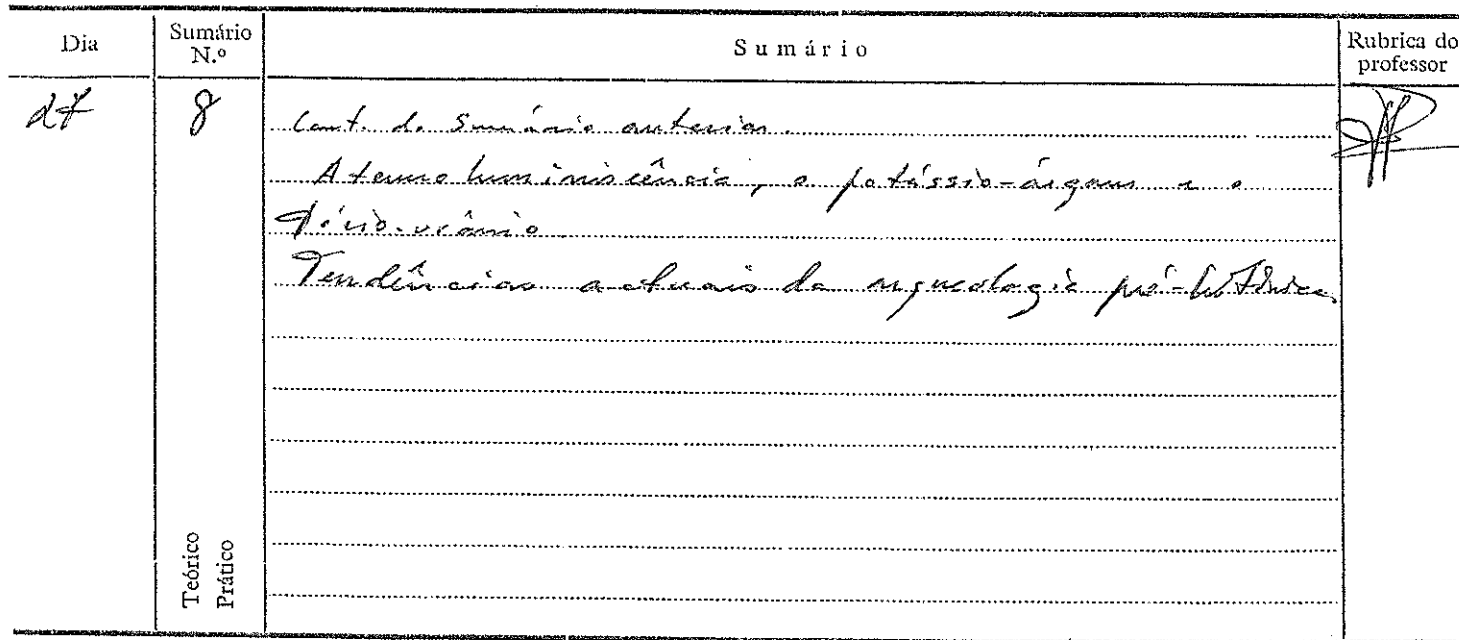 Dia
Sumário N.º
Sumário
Rubrica do professor
27
8
Cont. do Sumário anterior.
A termoluminiscência, o potássio-árgon e o
tório-urânio.
Tendências actuais da arqueologia pré-histórica
Teórico
Prático